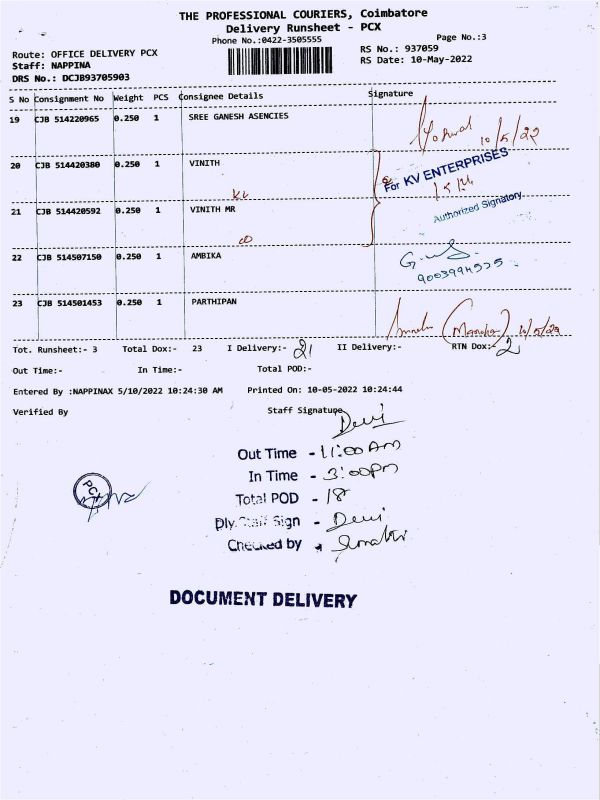 THE PROFESSIONAL COURIERS, Coimbatore
Delivery Runsheet - PCX
Phone No.:0422-3505555
Page No.:3
Route: OFFICE DELIVERY PCX
RS No.: 937059
Staff: NAPPINA
RS Date: 10-May-2022
DRS No.: DCJB93705903
S No Consignment No Weight PCS Consignee Details Signature
19 CJB 514220965 0.250 1 SREE GANESH ASENCIES
10/5/22
20 CJB 514420380 0.250 1 VINITH
For KV ENTERPRISES
Authorized Signatory
21 CJB 514420592 0.250 1 VINITH MR
22 CJB 514507150 0.250 1 AMBIKA
9003994525
23 CJB 514501453 0.250 1 PARTHIPAN
10/5/22
Tot. Runsheet:- 3 Total Dox:- 23 I Delivery:- 21 II Delivery:- RTN Dox:- 2
Out Time:- In Time:- Total POD:-
Entered By :NAPPINAX 5/10/2022 10:24:30 AM Printed On: 10-05-2022 10:24:44
Verified By Staff Signature
Devi
Out Time - 11:00 Am
In Time - 3:00pm
Total POD - 18
Dly.Staff Sign - Devi
Checked by
PCX
DOCUMENT DELIVERY